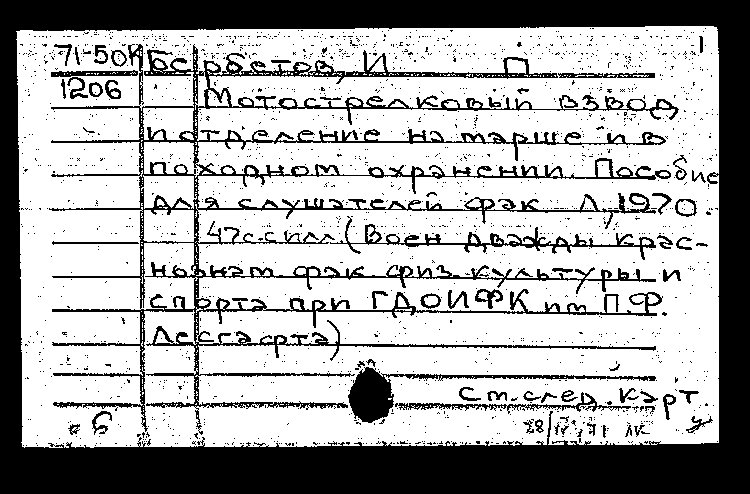 1
71-50К Барбетов, И П
1206 Мотострелковый взвод
и отделение на марше и в
походном охранении. Пособие
для слушателей фак Л, 1970.
47с.с илл (Воен дважды крас-
нознам фак физ культуры и
спорта при ГДОИФК им П.Ф.
Лесгафта)
См.след.карт.
б 28/IV.71